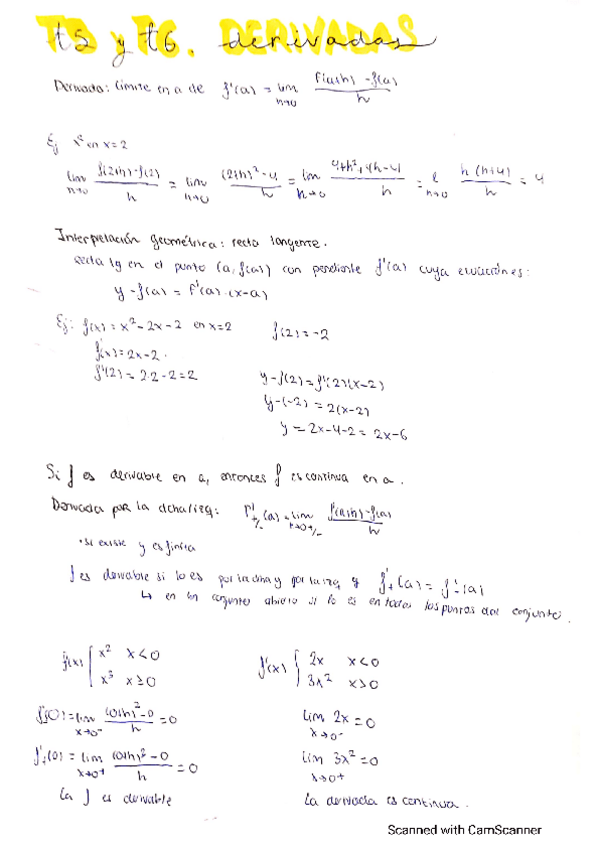 t5 y t6. derivadas
Derivada: límite en a de f'(a) = lim h→0 f(a+h) - f(a) / h
Ej x² en x=2
lim h→0 f(2+h)-f(2) / h = lim h→0 (2+h)² - 4 / h = lim h→0 4+h²+4h-4 / h = l h→0 h(h+4) / h = 4
Interpretación geométrica: recta tangente.
Recta tg en el punto (a, f(a)) con pendiente f'(a) cuya ecuación es:
y - f(a) = f'(a)·(x-a)
Ej: f(x) = x² - 2x - 2 en x=2 f(2) = -2
f'(x) = 2x - 2.
f'(2) = 2·2 - 2 = 2 y - f(2) = f'(2)(x-2)
y - (-2) = 2(x-2)
y = 2x - 4 - 2 = 2x - 6
Si f es derivable en a, entonces f es continua en a.
Derivada por la dcha/izq: f'+/-(a) = lim h→0+/- f(a+h) - f(a) / h
• si existe y es finita
f es derivable si lo es por la dcha y por la izq y f'+(a) = f'-(a)
↳ en un conjunto abierto si lo es en todos los puntos del conjunto.
f(x) { x² x<0 f'(x) { 2x x<0
x³ x≥0 3x² x>0
f'-(0) = lim x→0- (0+h)² - 0 / h = 0 lim x→0- 2x = 0
f'+(0) = lim x→0+ (0+h)³ - 0 / h = 0 lim x→0+ 3x² = 0
La f es derivable La derivada es continua.
Scanned with CamScanner